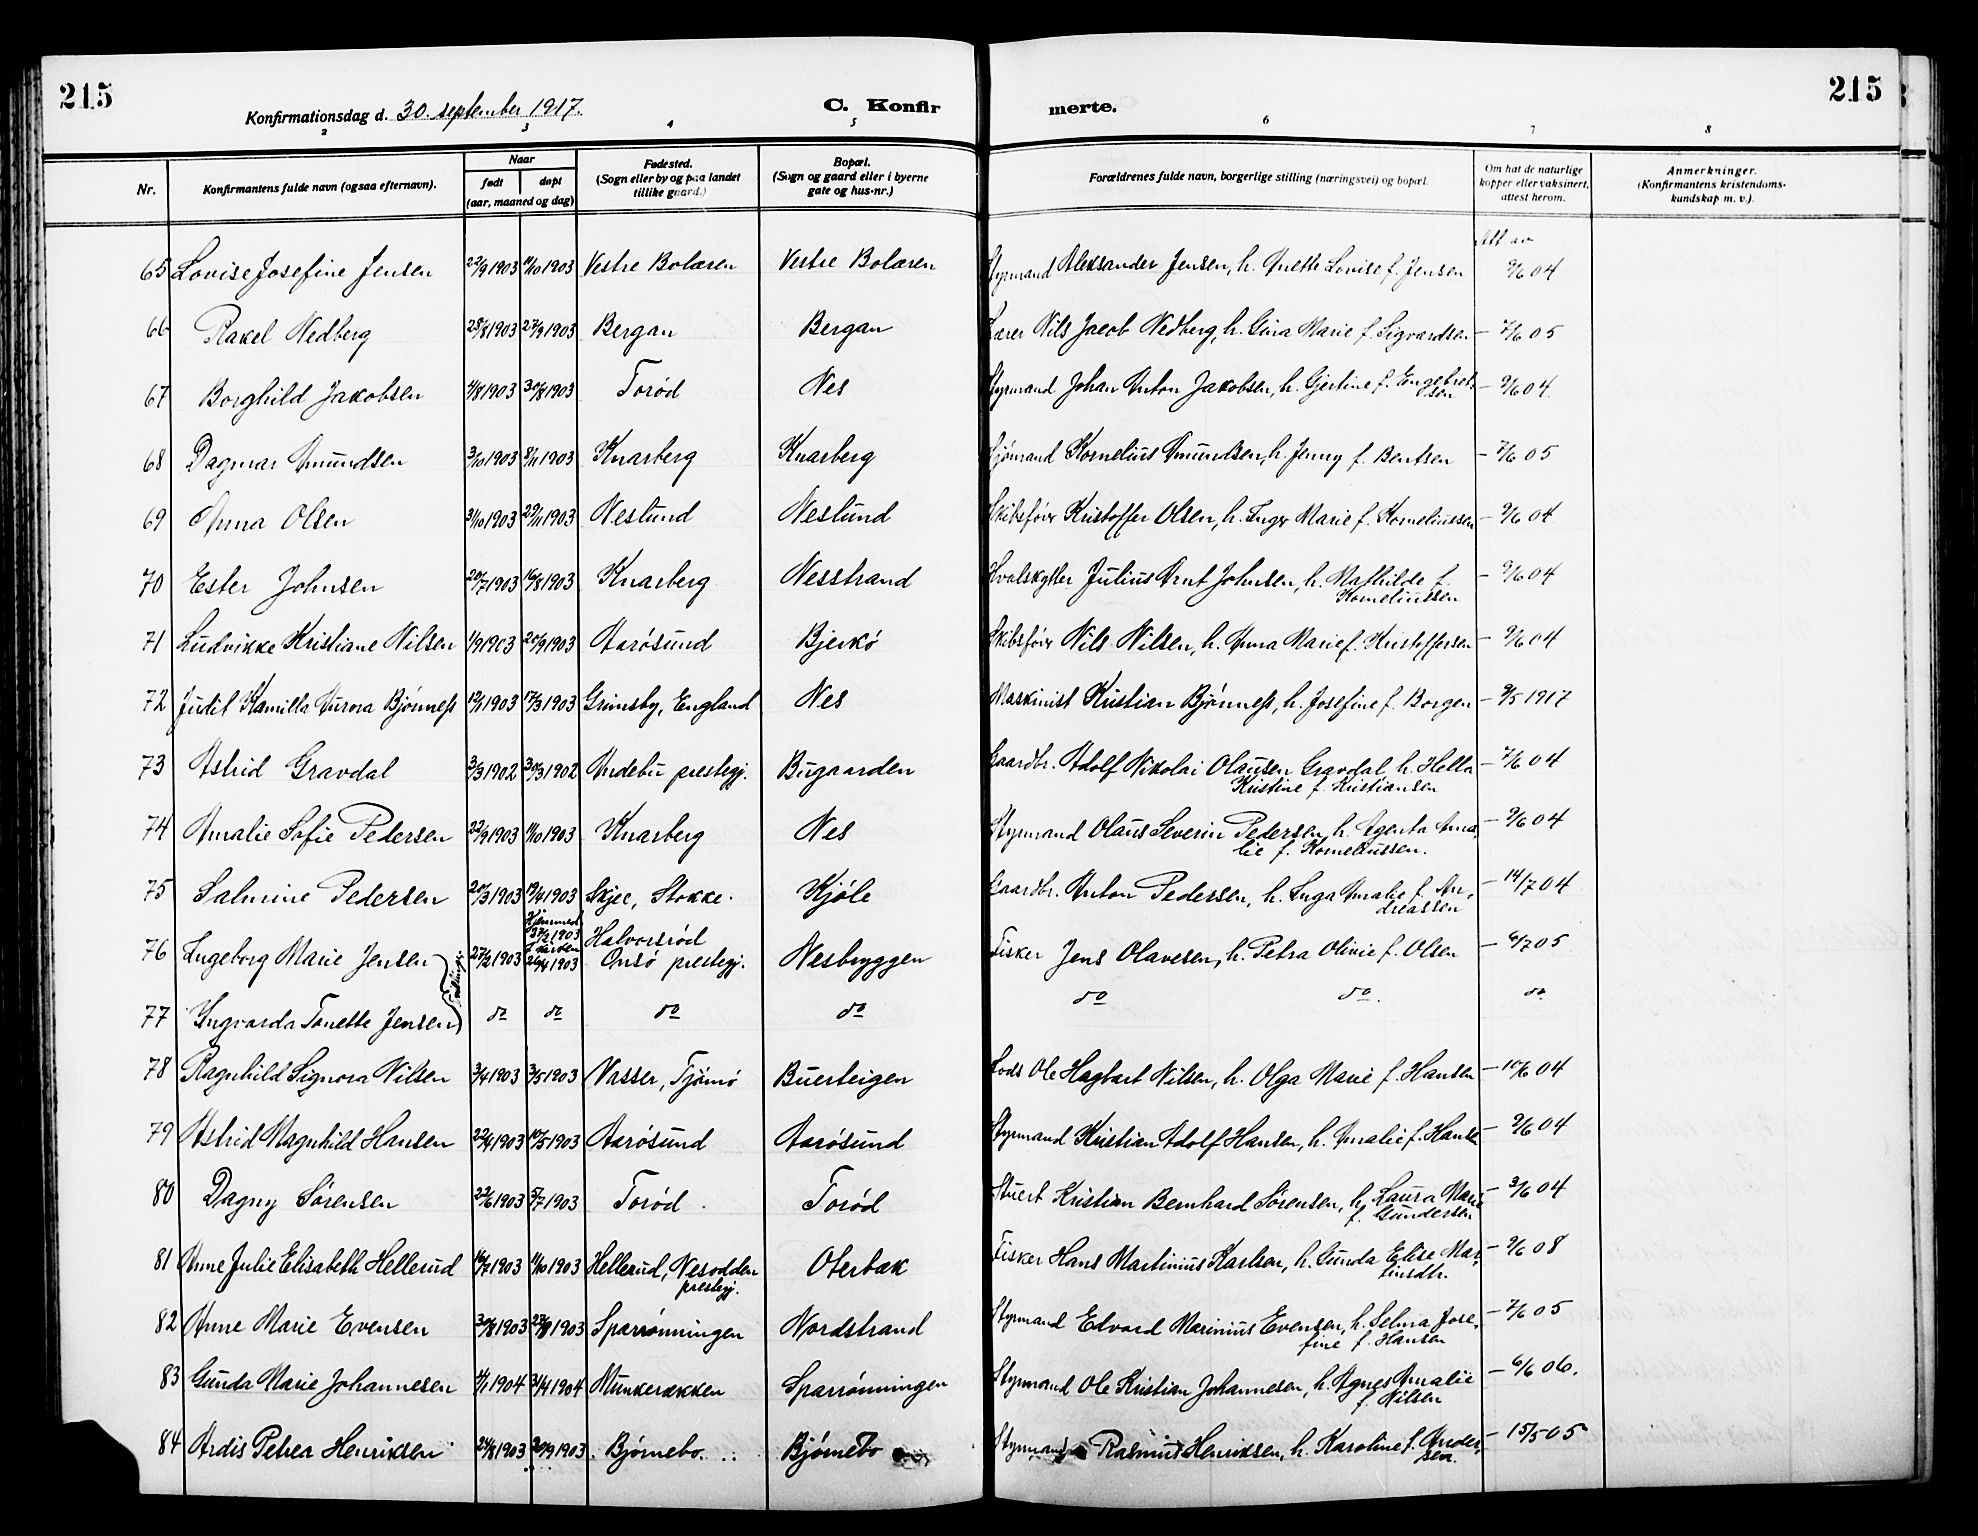 215
215
Konfirmationsdag d. 30. september 1917.
C. Konfir
merte.
2 3 4 5 6 7 8
Nr.
Konfirmantens fulde navn (ogsaa efternavn).
Naar
født
døpt
(aar, maaned og dag)
Fødested.
(Sogn eller by og paa landet
tillike gaard.)
Bopæl.
(Sogn og gaard eller i byerne
gate og hus-nr.)
Forældrenes fulde navn, borgerlige stilling (næringsvei) og bopæl.
Om hat de naturlige
kopper eller vaksinert,
attest herom.
Anmerkninger.
(Konfirmantens kristendoms-
kundskap m. v.).
Att av
65 Lovise Josefine Jensen 22/9 1903 11/10 1903 Vestre Bolæren Vestre Bolæren Styrmand Aleksander Jensen, h. Anette Lovise f. Jensen 9/6 04
66 Rakel Nedberg 28/8 1903 27/9 1903 Bergan Bergan Lærer Nils Jacob Nedberg, h. Gina Marie f. Sigvardsen – 7/6 05
67 Borghild Jakobsen 4/8 1903 30/8 1903 Torød Nes Styrmand Johan Anton Jakobsen, h. Gjertine f. Engebret-
sen – 9/6 04.
68 Dagmar Amundsen 3/10 1903 8/11 1903 Knarberg Knarberg Sjømand Kornelius Amundsen, h. Jenny f. Bentsen – 7/6 05
69 Anna Olsen 31/10 1903 29/11 1903 Neslund Neslund Skibsfører Kristoffer Olsen, h. Inger Marie f. Korneliussen – 9/6 04.
70 Ester Johnsen 20/7 1903 16/8 1903 Knarberg Nesstrand Hvalskytter Julius Arnt Johnsen, h. Mathilde f.
Korneliussen – 9/6 04
71 Ludvikke Kristiane Nilsen 1/9 1903 20/9 1903 Aarøsund Bjerkø Skibsfører Nils Nilsen, h. Anna Marie f. Kristoffersen – 9/6 04
72 Judit Kamilla Aurora Bjønness 12/1 1903 17/3 1903 Grimsby, England Nes Maskinist Kristian Bjønness, h. Josefine f. Borgen – 9/5 1917
73 Astrid Gravdal 3/3 1902 30/3 1902 Andebu prestegj. Bugaarden Gaardbr. Adolf Nikolai Olausen Gravdal, h. Hella
Kristine f. Kristiansen – 7/6 04
74 Amalie Sofie Pedersen 22/9 1903 11/10 1903 Knarberg Nes Styrmand Olaus Severin Pedersen, h. Agenta Ama-
lie f. Korneliussen. – 9/6 04
75 Salmine Pedersen 20/3 1903 19/4 1903 Skjee, Stokke. Kjøle Gaardbr. Anton Pedersen, h. Inga Amalie f. An-
dreassen – 14/7 04
76 Ingeborg Marie Jensen 27/2 1903 Hjemmed.
27/2 1903
i kirken
26/4 1903 Halvorsrød
Onsø prestegj. Nesbryggen Fisker Jens Olavesen, h. Petra Olivie f. Olsen – 6/7 05
Tvillinger
77 Ingvarda Tonette Jensen do do do do do do. do
78 Ragnhild Signora Nilsen 3/4 1903 3/5 1903 Vasser, Tjømø Buerteigen Lods Ole Hagbart Nilsen, h. Olga Marie f. Hansen – 10/6 04
79 Astrid Magnhild Hansen 22/4 1903 10/5 1903 Aarøsund Aarøsund Styrmand Kristian Adolf Hansen, h. Amalie f. Hansen – 9/6 04
80 Dagny Sørensen 22/6 1903 5/7 1903 Torød. Torød Stuert Kristian Bernhard Sørensen, h. Laura Marie
f. Gundersen – 3/6 04
81 Anne Julie Elisabeth Hellerud 16/7 1903 11/10 1903 Hellerud, Nesodden
prestegj. Oterbæk Fisker Hans Martinius Karlsen, h. Gunda Elise Mar-
tinsdtr. – 9/6 08
82 Anne Marie Evensen 30/8 1903 27/9 1903 Sparrønningen Nordstrand Styrmand Edvard Marinius Evensen, h. Selma Jose-
fine f. Hansen – 7/6 05
83 Gunda Marie Johannesen 4/1 1904 3/4 1904 Munkerækken Sparrønningen Styrmand Ole Kristian Johannesen, h. Agnes Amalie
f. Nilsen – 6/6 06.
84 Ardis Petrea Henriksen 24/8 1903 20/9 1903 Bjørnebo. Bjørnebo Styrmand Rasmus Henriksen, h. Karoline f. Ander-
sen. – 15/5 05